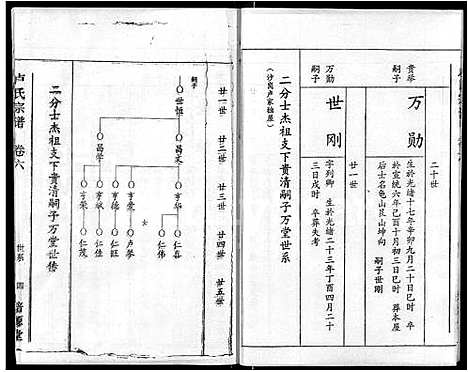 二十世
貴举嗣子
万勛
生於光绪十七年辛卯九月二十日巳时 卒
於宣統六年己酉十月初三日巳时 葬本屋
后土名龟山艮山坤向 嗣子世刚
廿一世
万勛嗣子
世刚
字列卿 生於光绪二十三年丁酉四月二十
三日戌时 卒葬失考
二分士杰祖支下貴清嗣子万堂世系
(沙岗卢家独屋)
廿一世
廿二世
廿三世
廿四世
廿五世
嗣子
世恒
昌文
昌学
亨华
亨梦
亨德
亨斌
亨荣
仁喜
仁伟
卢琴
仁旺
仁佳
仁茂
二分士杰祖支下貴清嗣子万堂世传
卢氏宗谱 卷六
世系
四